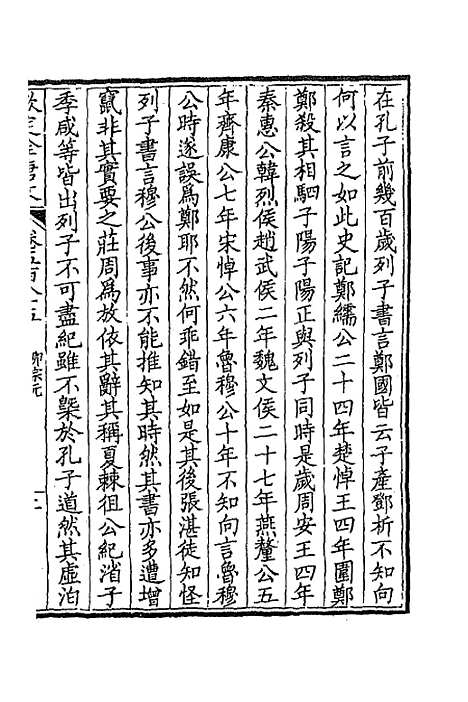 在孔子前幾百歲列子書言鄭國皆云子產鄧析不知向
何以言之如此史記鄭繻公二十四年楚悼王四年圍鄭
鄭殺其相駟子陽子陽正與列子同時是歲周安王四年
秦惠公韓烈侯趙武侯二年魏文侯二十七年燕釐公五
年齊康公七年宋悼公六年魯穆公十年不知向言魯穆
公時遂誤為鄭耶不然何乖錯至如是其後張湛徒知怪
列子書言穆公後事亦不能推知其時然其書亦多遭增
竄非其實要之莊周為放依其辭其稱夏棘狙公紀渻子
季咸等皆出列子不可盡紀雖不槩於孔子道然其虛泊
欽定全唐文
卷五百八十五
柳宗元